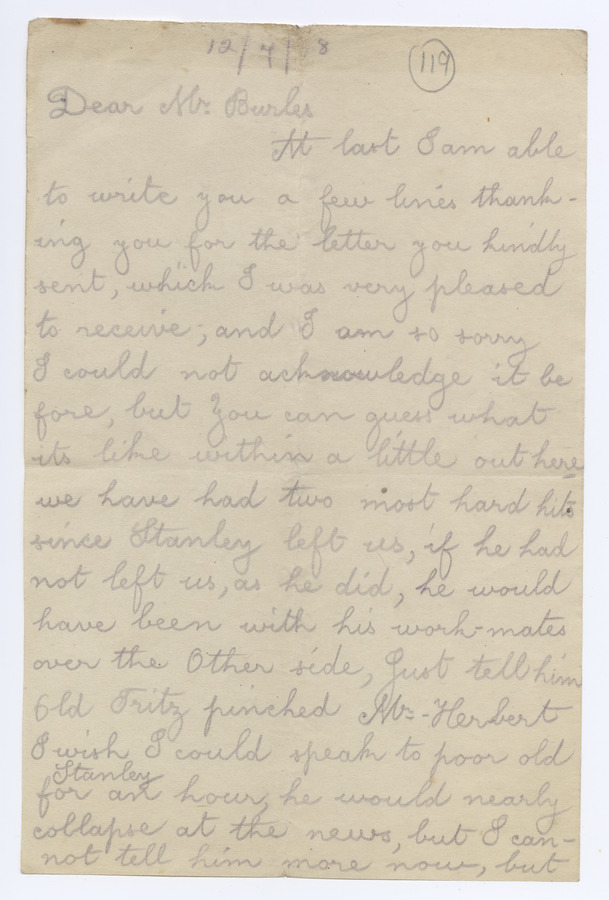 12/7/ 8
119
Dear Mr. Burles
At last I am able
to write you a few lines thank-
ing you for the letter you kindly
sent, which I was very pleased
to receive, and I am so sorry
I could not acknowledge it be
fore, but You can guess what
its like within a little out here
we have had two most hard hits
since Stanley left us, if he had
not left us, as he did, he would
have been with his work-mates
over the Other side, Just tell him
Old Fritz pinched Mr-Herbert
I wish I could speak to poor old
Stanley
for an hour, he would nearly
collapse at the news, but I can-
not tell him more now, but